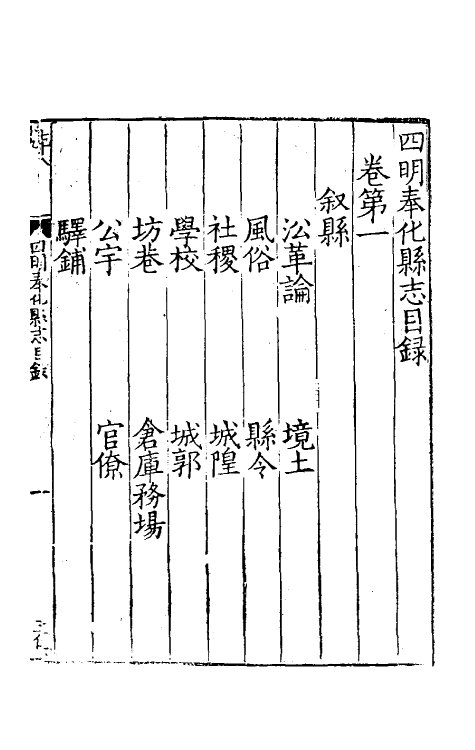 四明奉化縣志目録
卷第一
叙縣
㳂革論 境土
風俗 縣令
社稷 城隍
學校 城郭
坊巷 倉庫務場
公宇 官僚
驛鋪
四明奉化縣志目録 一